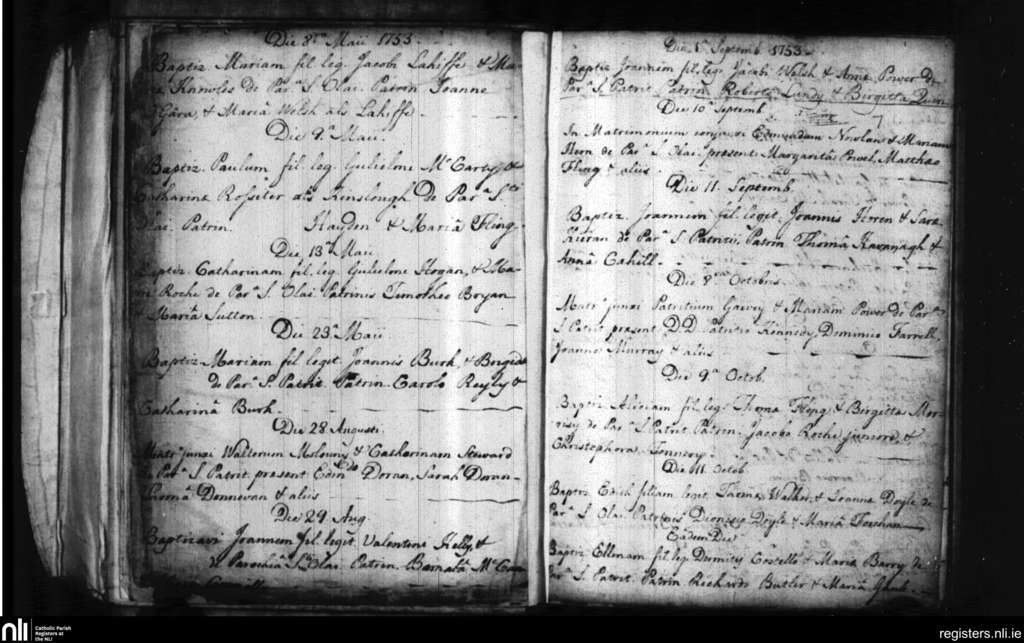 Die 8va Maii 1753.
Baptiz Mariam fil. leg. Jacobi Lahiffe & Ma-
Knowles de Para S Olai. Patrin Joanne
Gara, & Mariâ Welsh als Lahiffe.
Die 9a Maii.
Baptiz. Paulum fil. leg. Gulielmi Mc Carty &
Catharina Rossiter als Kinslough de Para S.ti
Olai. Patrin. Hayden & Mariâ Fling.
Die 13a Maii
Baptiz. Catharinam fil. leg. Gulielmi Hogan, & Ma-
Roche de Para S. Olai. Patrinis Timotheo Bryan
& Mariâ Sutton.
Die 23a Maii.
Baptiz Mariam fil legit Joannis Burk, & Brigid
de Para S. Patrit. Patrin. Carolo Reyly &
Catharinâ Burk.
Die 28 Augusti.
Matr junxi Walterum & Catharinam Steward
de Para S Patrit. present Edmdo Doran, Sarah Doran
Thomâ Donnevan & aliis
Die 29 Aug.
Baptizavi Joannem fil. legit. Valentini Kelly, &
de Parochia S Olai. Patrin. Barnabâ Mc
Die 1a Septemb 1753.
Baptiz Joannem fil. leg. Jacobi Welsh & Anna Power de
Para S. Patrit. Patrin Roberto Lundy & Birgitta Quin
Die 10a Septemb
In Matrimonium conjunxi Edmundum Nowlan & Mariam
de Para S. Olai. present. Margaritâ Powel, Matthæo
Fling & aliis.
Die 11. Septemb.
Baptiz. Joannem fil. legit. Joannis & Sara
Kieran de Para S. Patritii. Patrin Thomâ Kavanagh &
Annâ Cahill.
Die 8va Octobris
Matr junxi Patritium Garvey & Mariam Power de Para
S Patrit present D.D. Patritio Kennedy, Dominico Farrell,
Joanne Murray & aliis
Die 9a Octob.
Baptiz Aliciam fil. leg. Thoma & Birgitta Mor-
risy de Para S Patrit. Patrin. Jacobo Roche juniore, &
Christophora
Die 11. Octob.
Baptiz filiam legit. Walker, & Joanna Doyle de
Para S. Olai. Patrinis Dionisio Doyle & Mariâ
Eadem Die
Baptiz Ellenam fil. leg. Dermitii Costello & Maria Barry de
Para S. Patrit. Patrin Richardo Butler & Mariâ
nli
Catholic Parish
Registers at
the NLI
registers.nli.ie